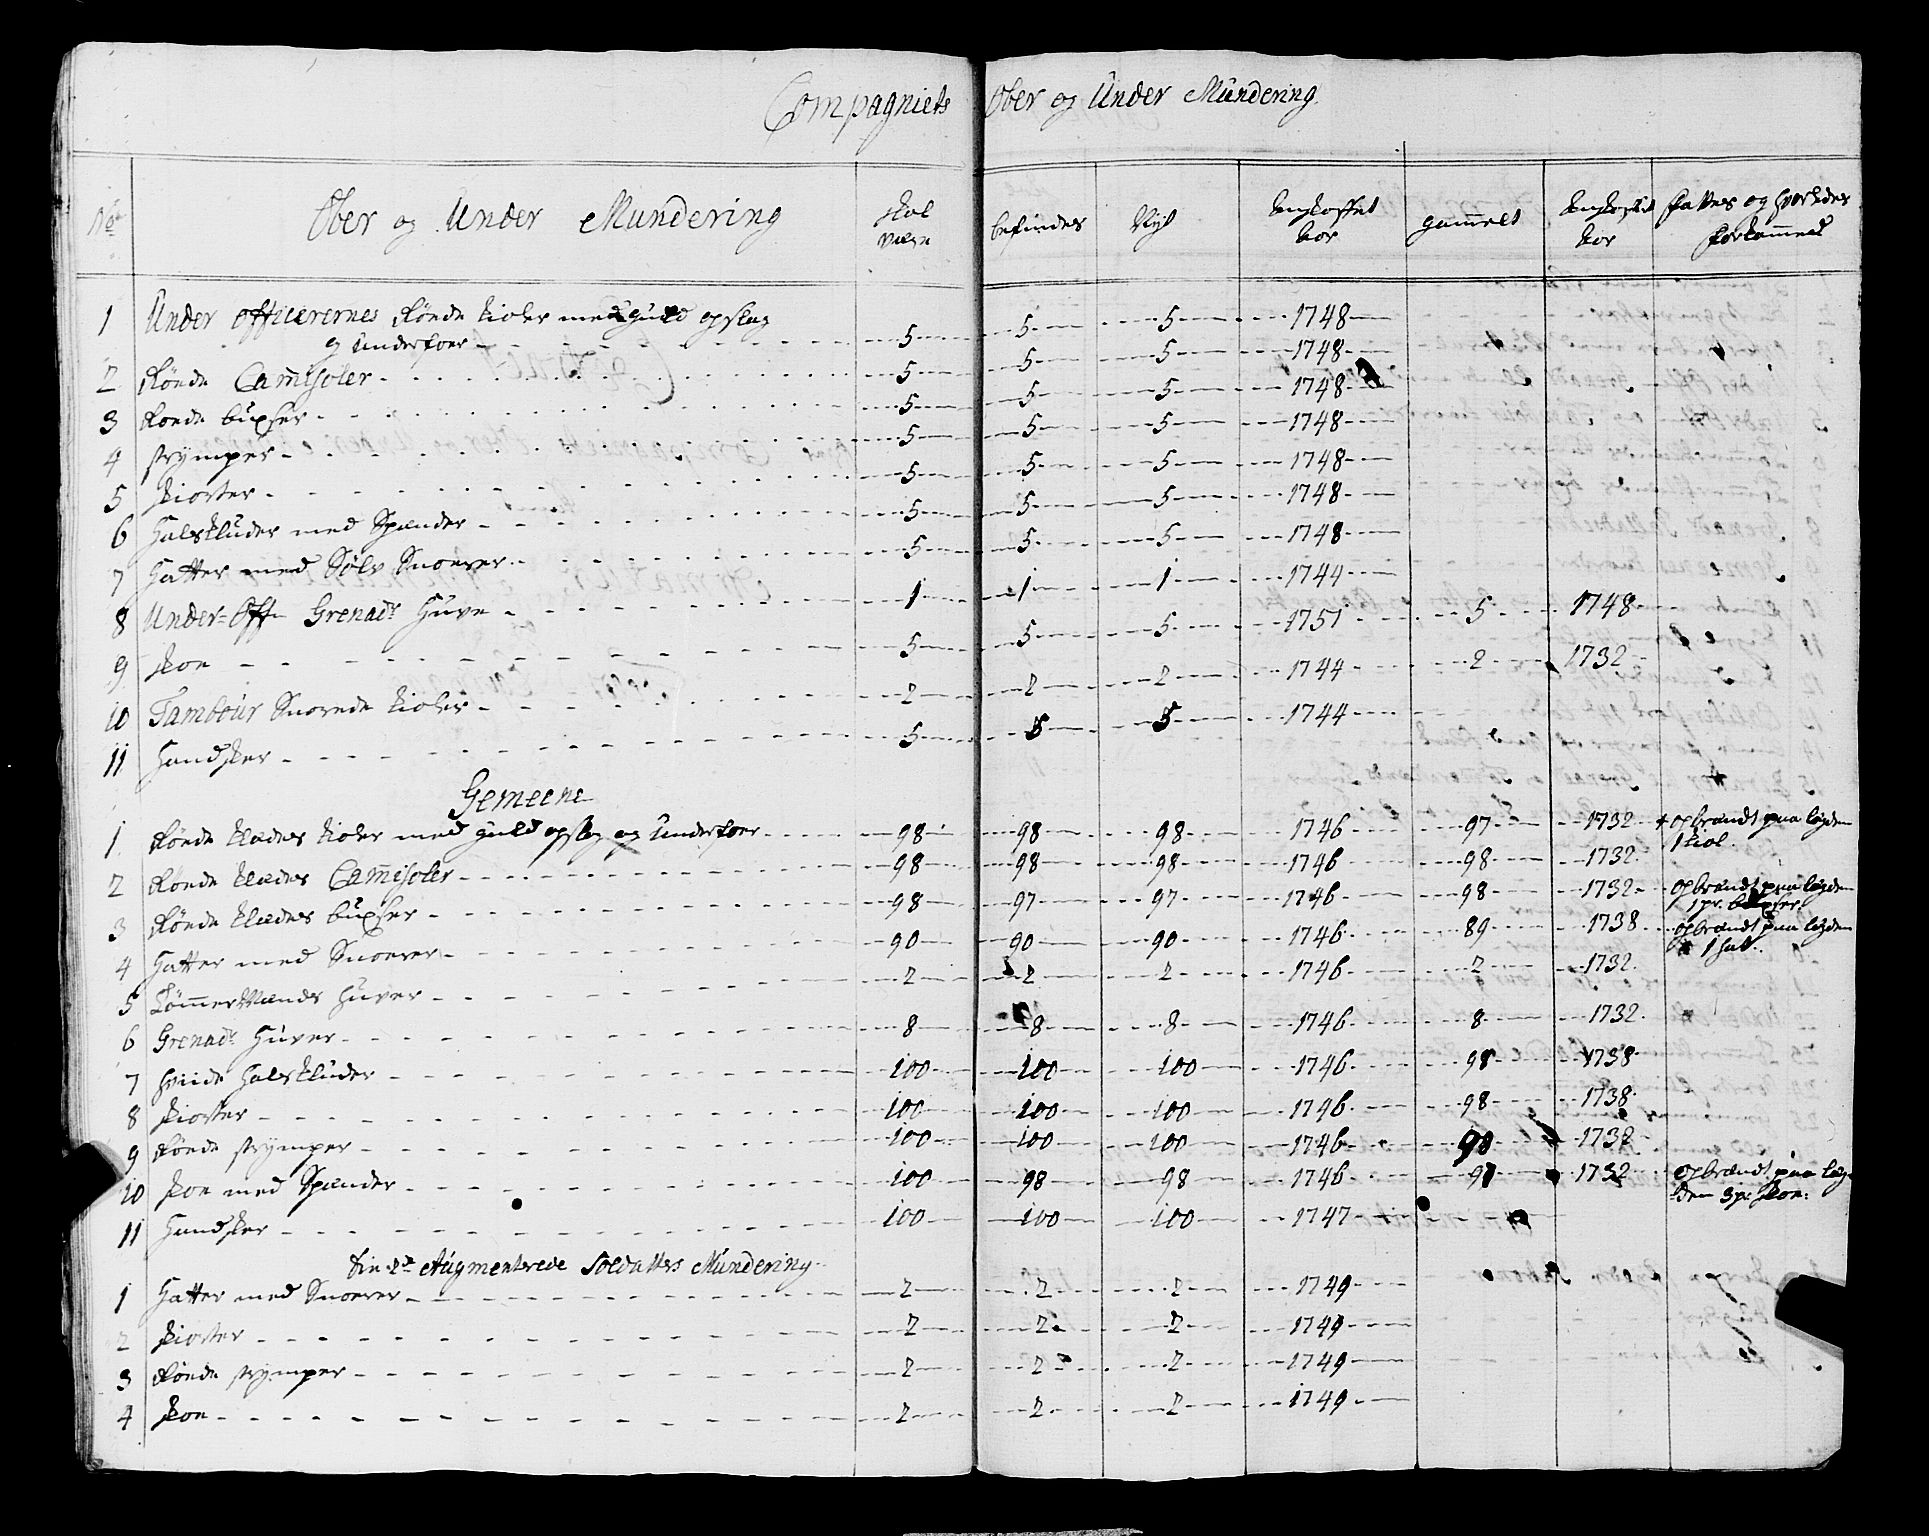 Compagniets Ober og Under Mundering
No Ober og Under Mundering skal være befindes Nyt Anskaffet Aar gammelt Anskaffet Aar fattes og hvorledes forkommet
1 Under Officerernes Røde Kioler med guld opslag
og Underfoer 5 5 5 1748
2 Røde Camisoler 5 5 5 1748
3 Røde buxser 5 5 5 1748
4 strømper 5 5 5 1748
5 skiorter 5 5 5 1748
6 Halsklude med Spænder 5 5 5 1748
7 Hatter med Sølv Snorer 5 5 5 1748
8 Under-Off Grenadr Huve 1 1 1 1744
9 skoe 5 5 5 1751 5 1748
10 Tambour Snorede Kioler 2 2 2 1744 2 1732
11 Handsker 5 5 5 1744
Gemeene
1 Røde Klædes Kioler med guld opslag og Underfoer 98 98 98 1746 97 1732 + opbrændt paa lægden
1 Kiol
2 Røde Klædes Camisoler 98 98 98 1746 98 1732
3 Røde Klædes buxser 98 97 97 1746 98 1732 opbrændt paa lægden
1 pr. buxser
4 Hatter med Snorer 90 90 90 1746 89 1738 opbrændt paa lægden
1 hat
5 Tømmermænds Huver 2 2 2 1746 2 1732
6 Grenadr Huver 8 8 8 1746 8 1732
7 hvide Halsklude 100 100 100 1746 98 1738
8 skiorter 100 100 100 1746 98 1738
9 Røde strømper 100 100 100 1746 98 1738
10 skoe med Spænder 100 98 98 1746 97 1732 opbrændt paa læg-
den 3 pr skoe
11 Handsker 100 100 100 1747
Die 2de Augmenterede Soldatters Mundering
1 Hatter med Snorer 2 2 2 1749
2 skiorter 2 2 2 1749
3 Røde strømper 2 2 2 1749
4 skoe 2 2 2 1749